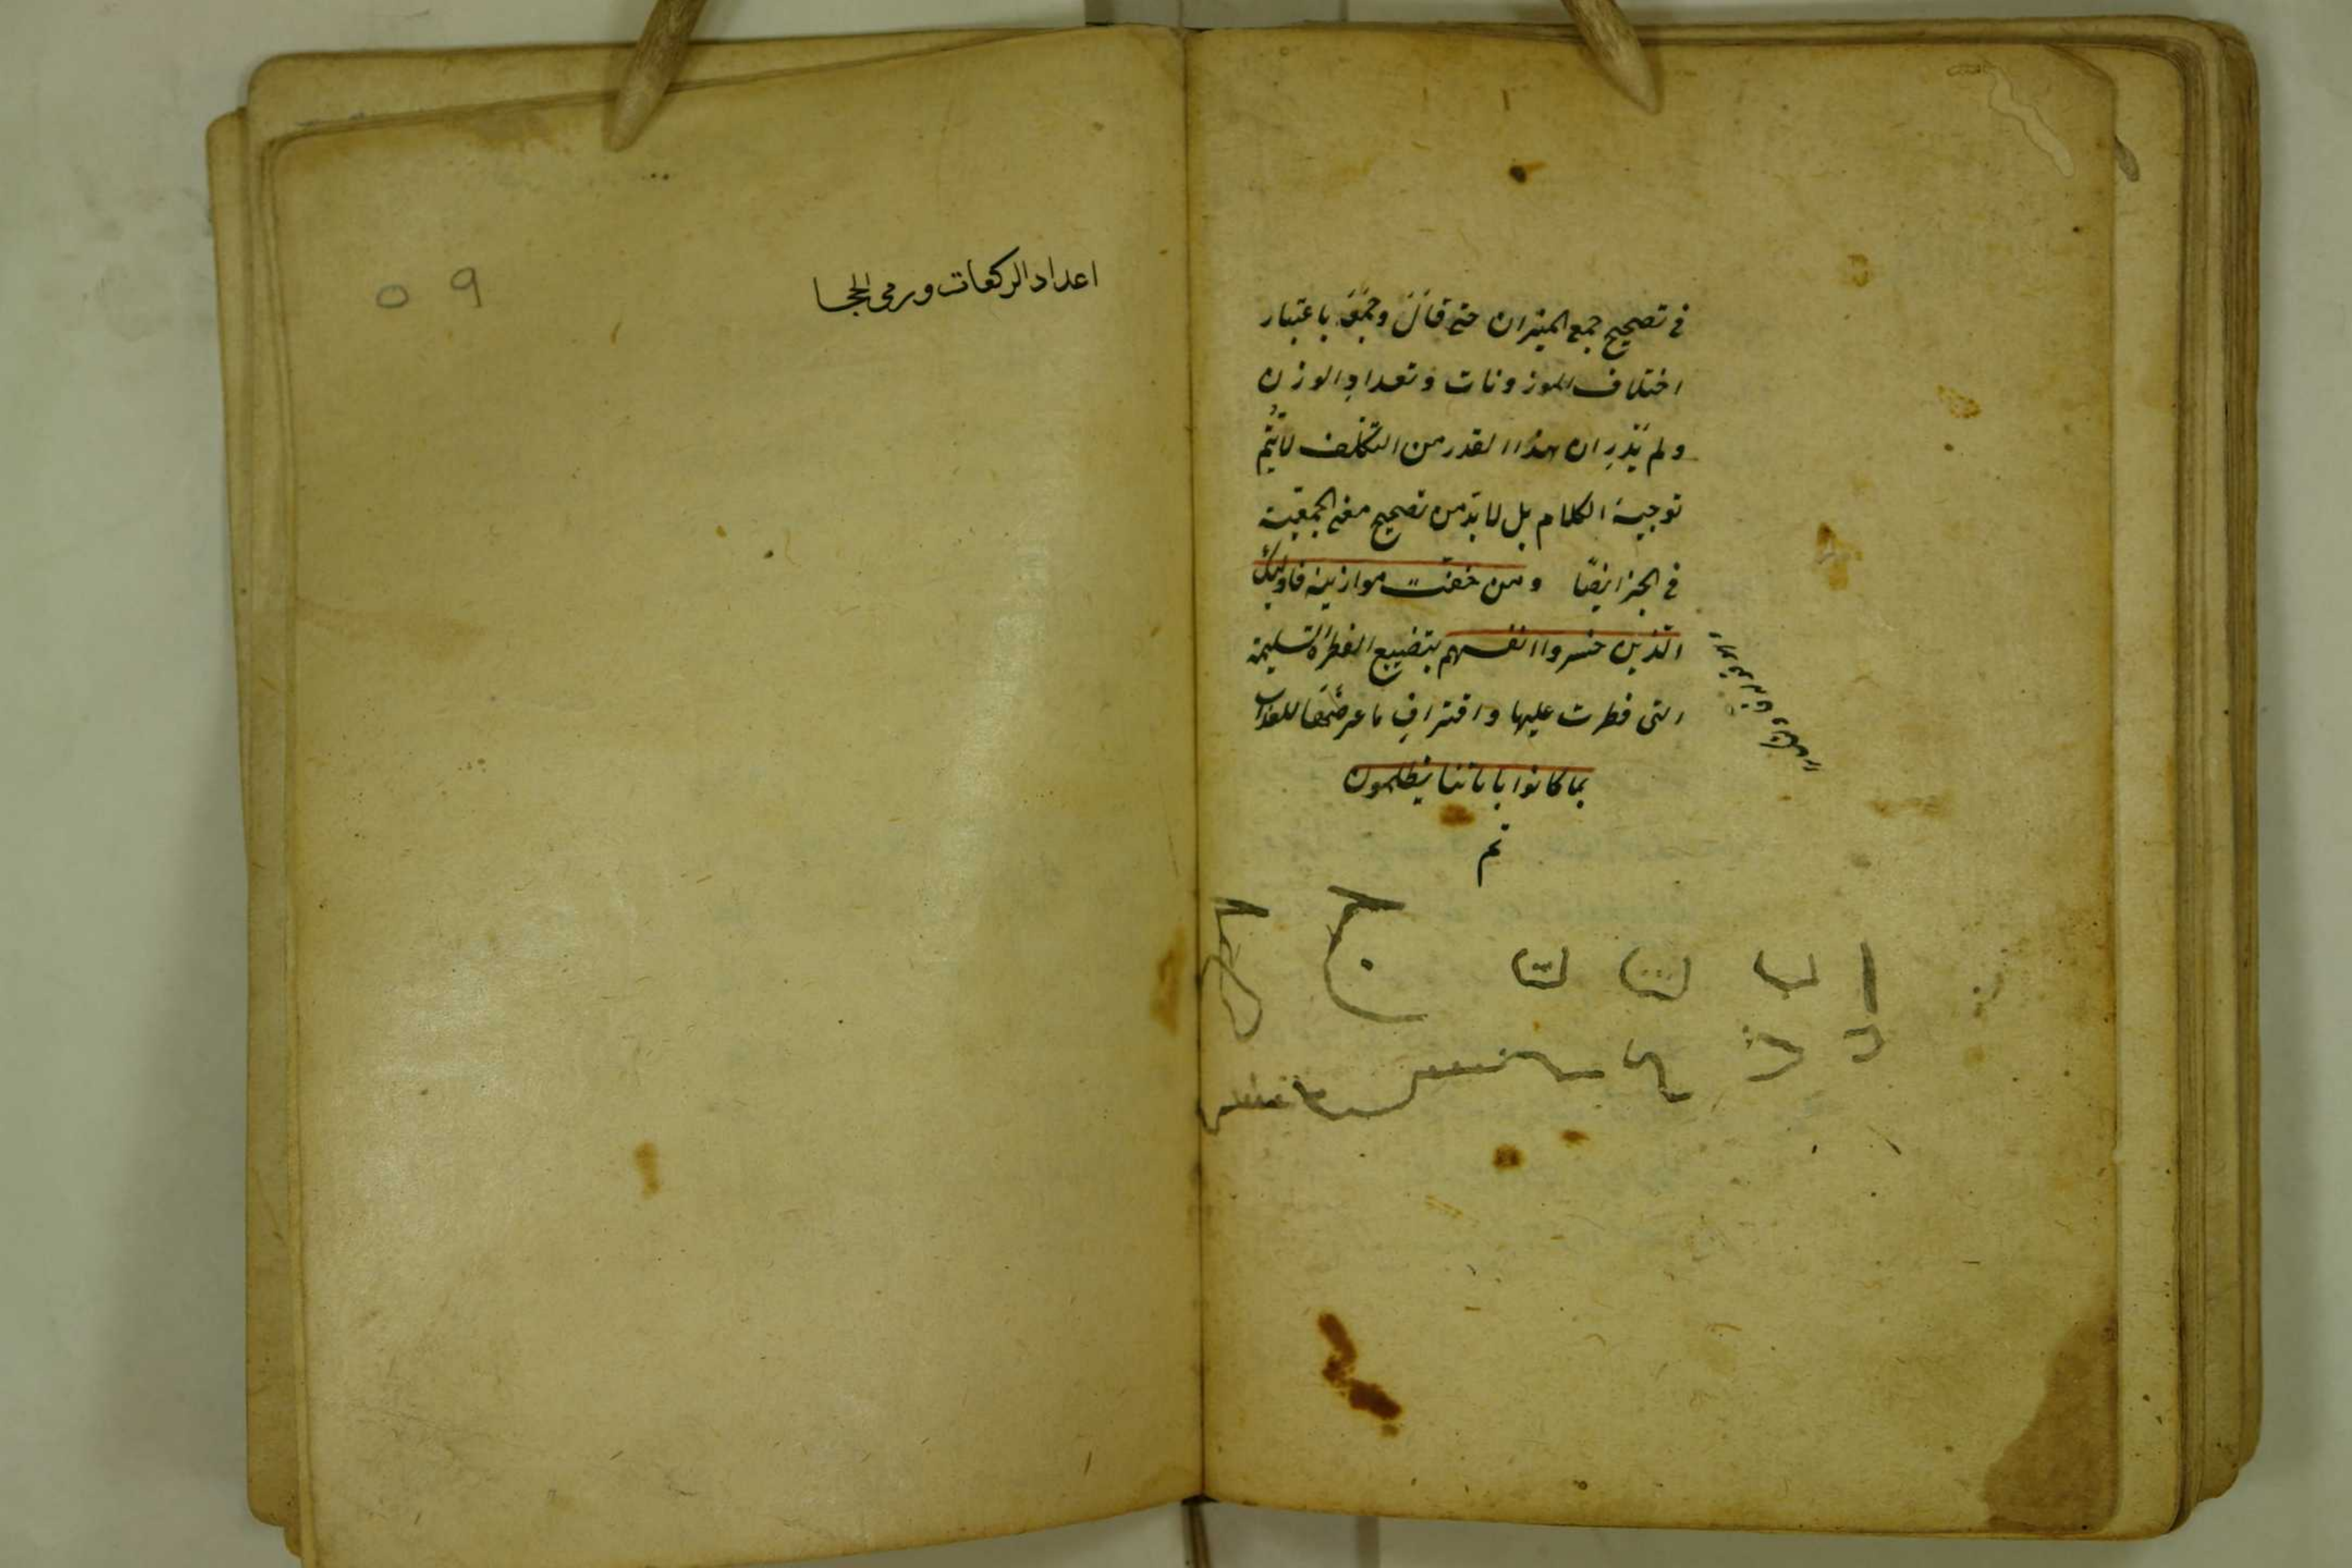 في تصحيح جمع الميزان حتى قال وجمعه باعتبار
اختلاف الموزونات وتعداد الوزن
ولم يدر ان هذا القدر من التكلف لا يتم
توجيه الكلام بل لا بد من تصحيح معنى الجمعية
في الجزا ايضًا ومن خفت موازينه فاولئك
الذين خسروا انفسهم بتضييع الفطرة السليمة
التي فطرت عليها واقتراف ما عرضها للعذاب
بما كانوا باياتنا يظلمون
تم
ا ب ت ث ج
اعداد الركعات ورمى الجما
٥٩